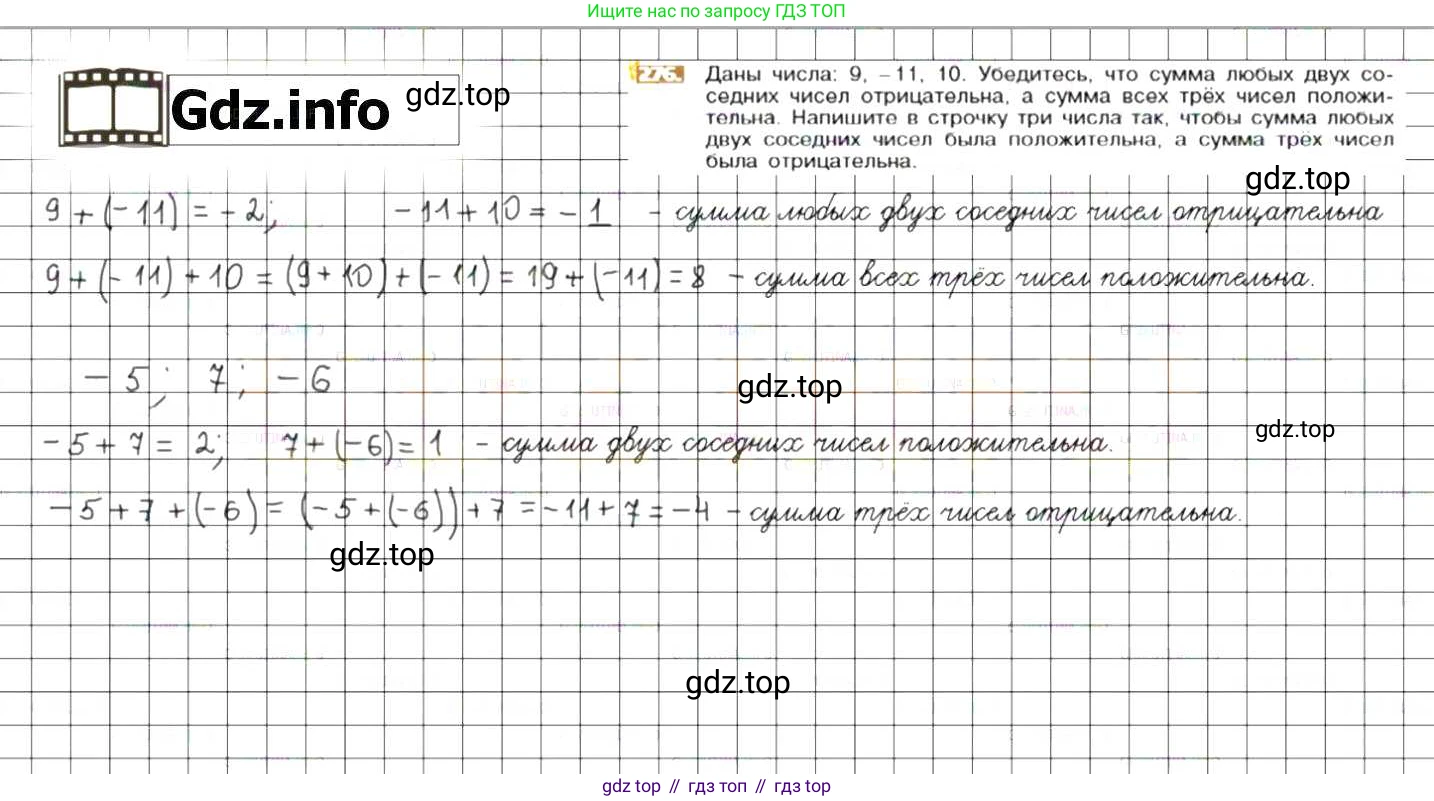 Ищите нас по запросу ГДЗ ТОП
Gdz.info
gdz.top
276. Даны числа: 9, −11, 10. Убедитесь, что сумма любых двух со-
седних чисел отрицательна, а сумма всех трёх чисел положи-
тельна. Напишите в строчку три числа так, чтобы сумма любых
двух соседних чисел была положительна, а сумма трёх чисел
была отрицательна.
gdz.top
9 + (−11) = −2; −11 + 10 = −1 − сумма любых двух соседних чисел отрицательна
9 + (−11) + 10 = (9 + 10) + (−11) = 19 + (−11) = 8 − сумма всех трёх чисел положительна.
−5; 7; −6
gdz.top
−5 + 7 = 2; 7 + (−6) = 1 − сумма двух соседних чисел положительна.
gdz.top
−5 + 7 + (−6) = (−5 + (−6)) + 7 = −11 + 7 = −4 − сумма трёх чисел отрицательна.
gdz.top
gdz.top
gdz top // гдз топ // гдз top